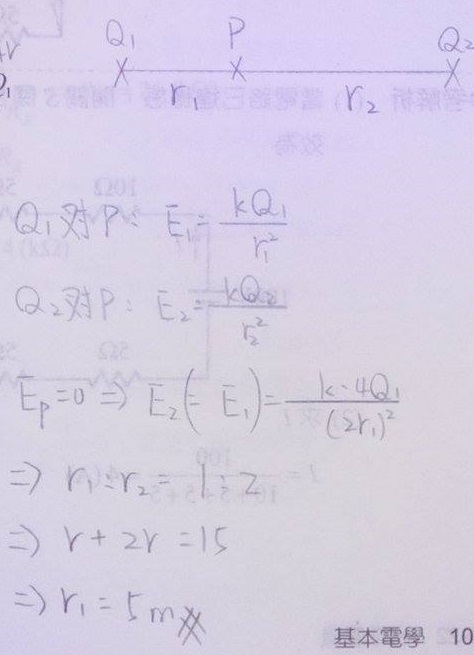 Q₁ P Q₂
r₁ r₂
Q₁対P: E₁ = kQ₁/r₁²
Q₂対P: E₂ = kQ₂/r₂²
Eₚ=0 ⇒ E₂(= E₁) = k·4Q₁/(2r₁)²
⇒ r₁:r₂ = 1:2
⇒ r+2r=15
⇒ r₁=5m
基本電學 10